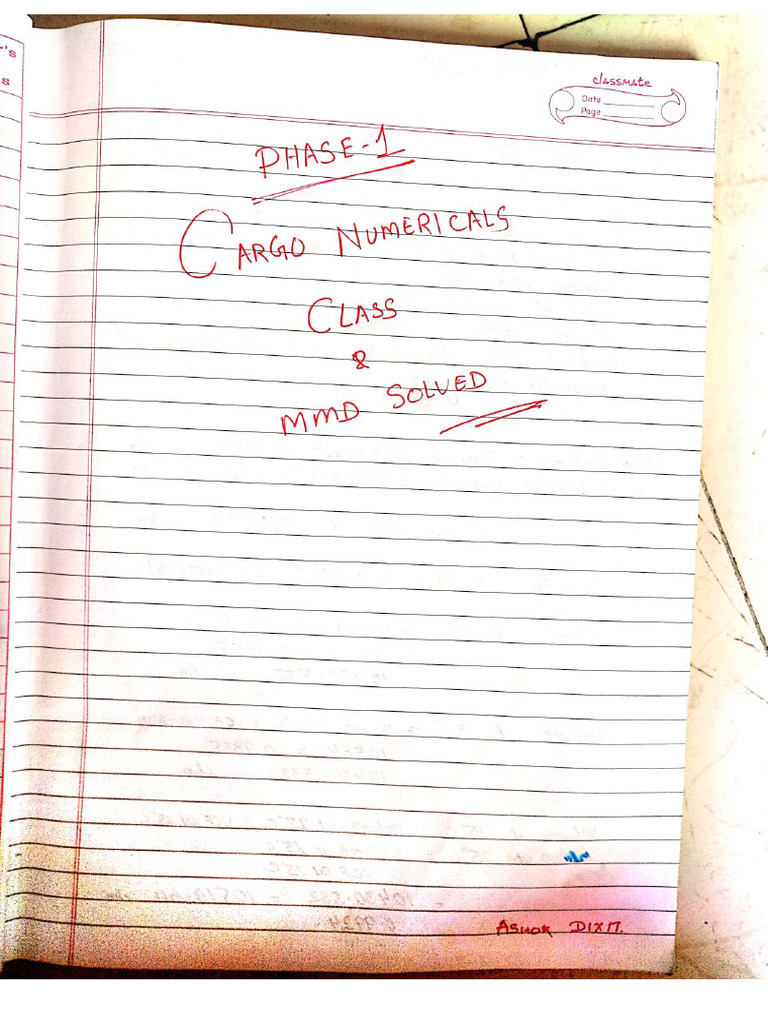 's
s
classmate
Date
Page
PHASE-1
CARGO NUMERICALS
CLASS
&
MMD SOLVED
ASHOK DIXIT.